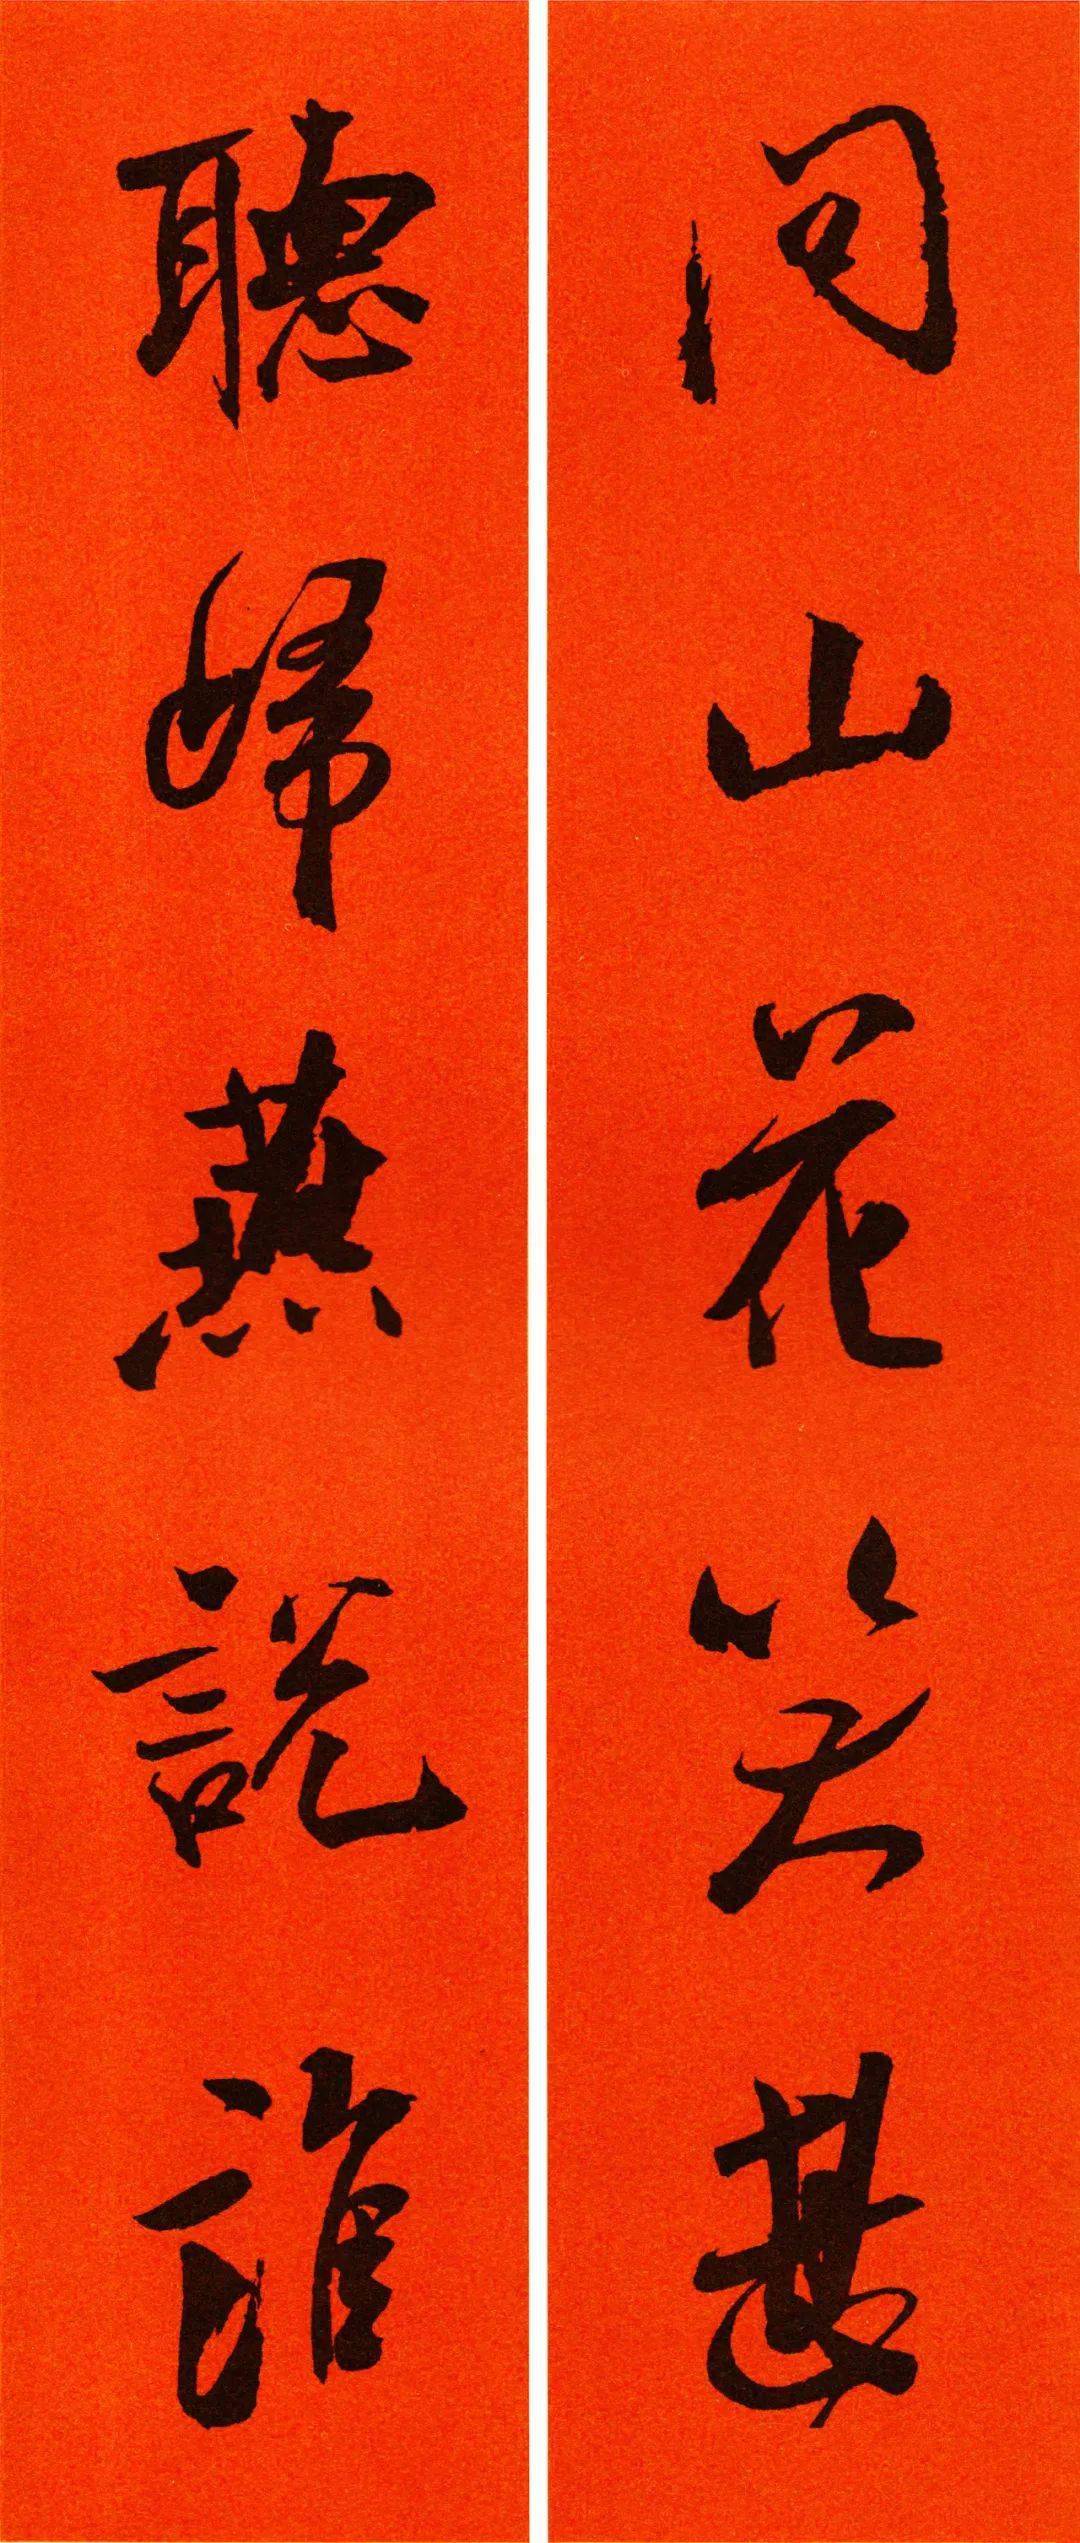 问山花笑甚
聽歸燕説誰